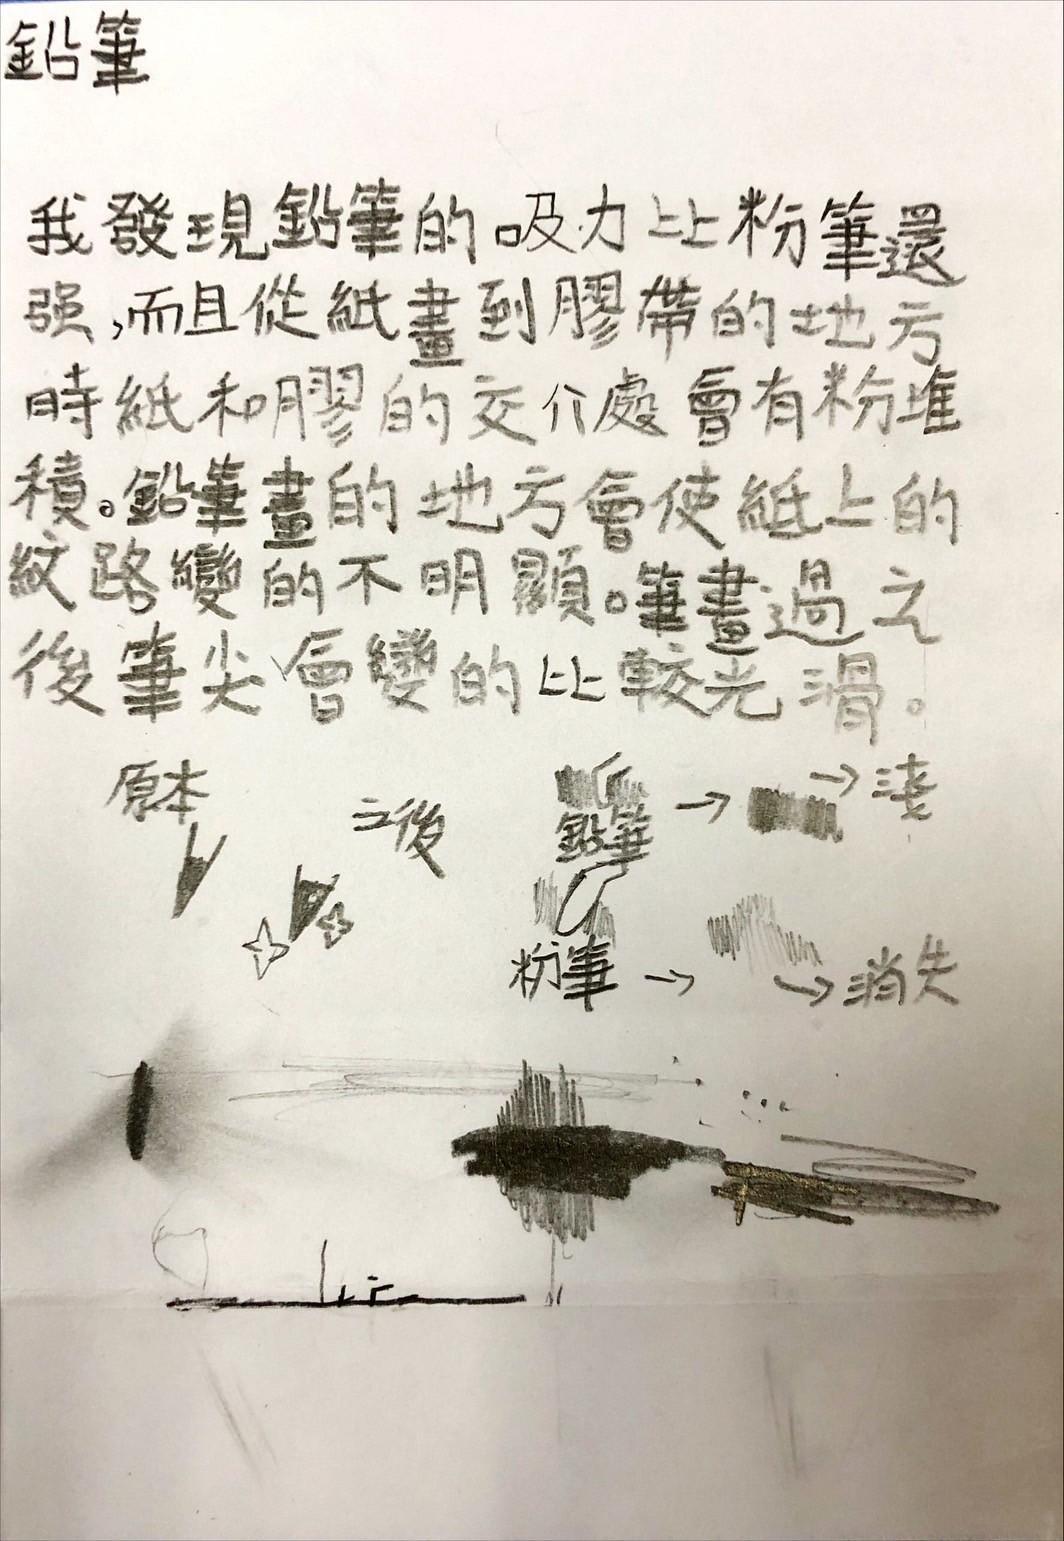 鉛筆
我發現鉛筆的吸力比粉筆還
強,而且從紙畫到膠帶的地方
時紙和膠的交介處會有粉堆
積。鉛筆畫的地方會使紙上的
紋路變的不明顯。筆畫過之
後筆尖會變的比較光滑。
原本
之後
鉛筆 → → 淺
粉筆 → → 消失